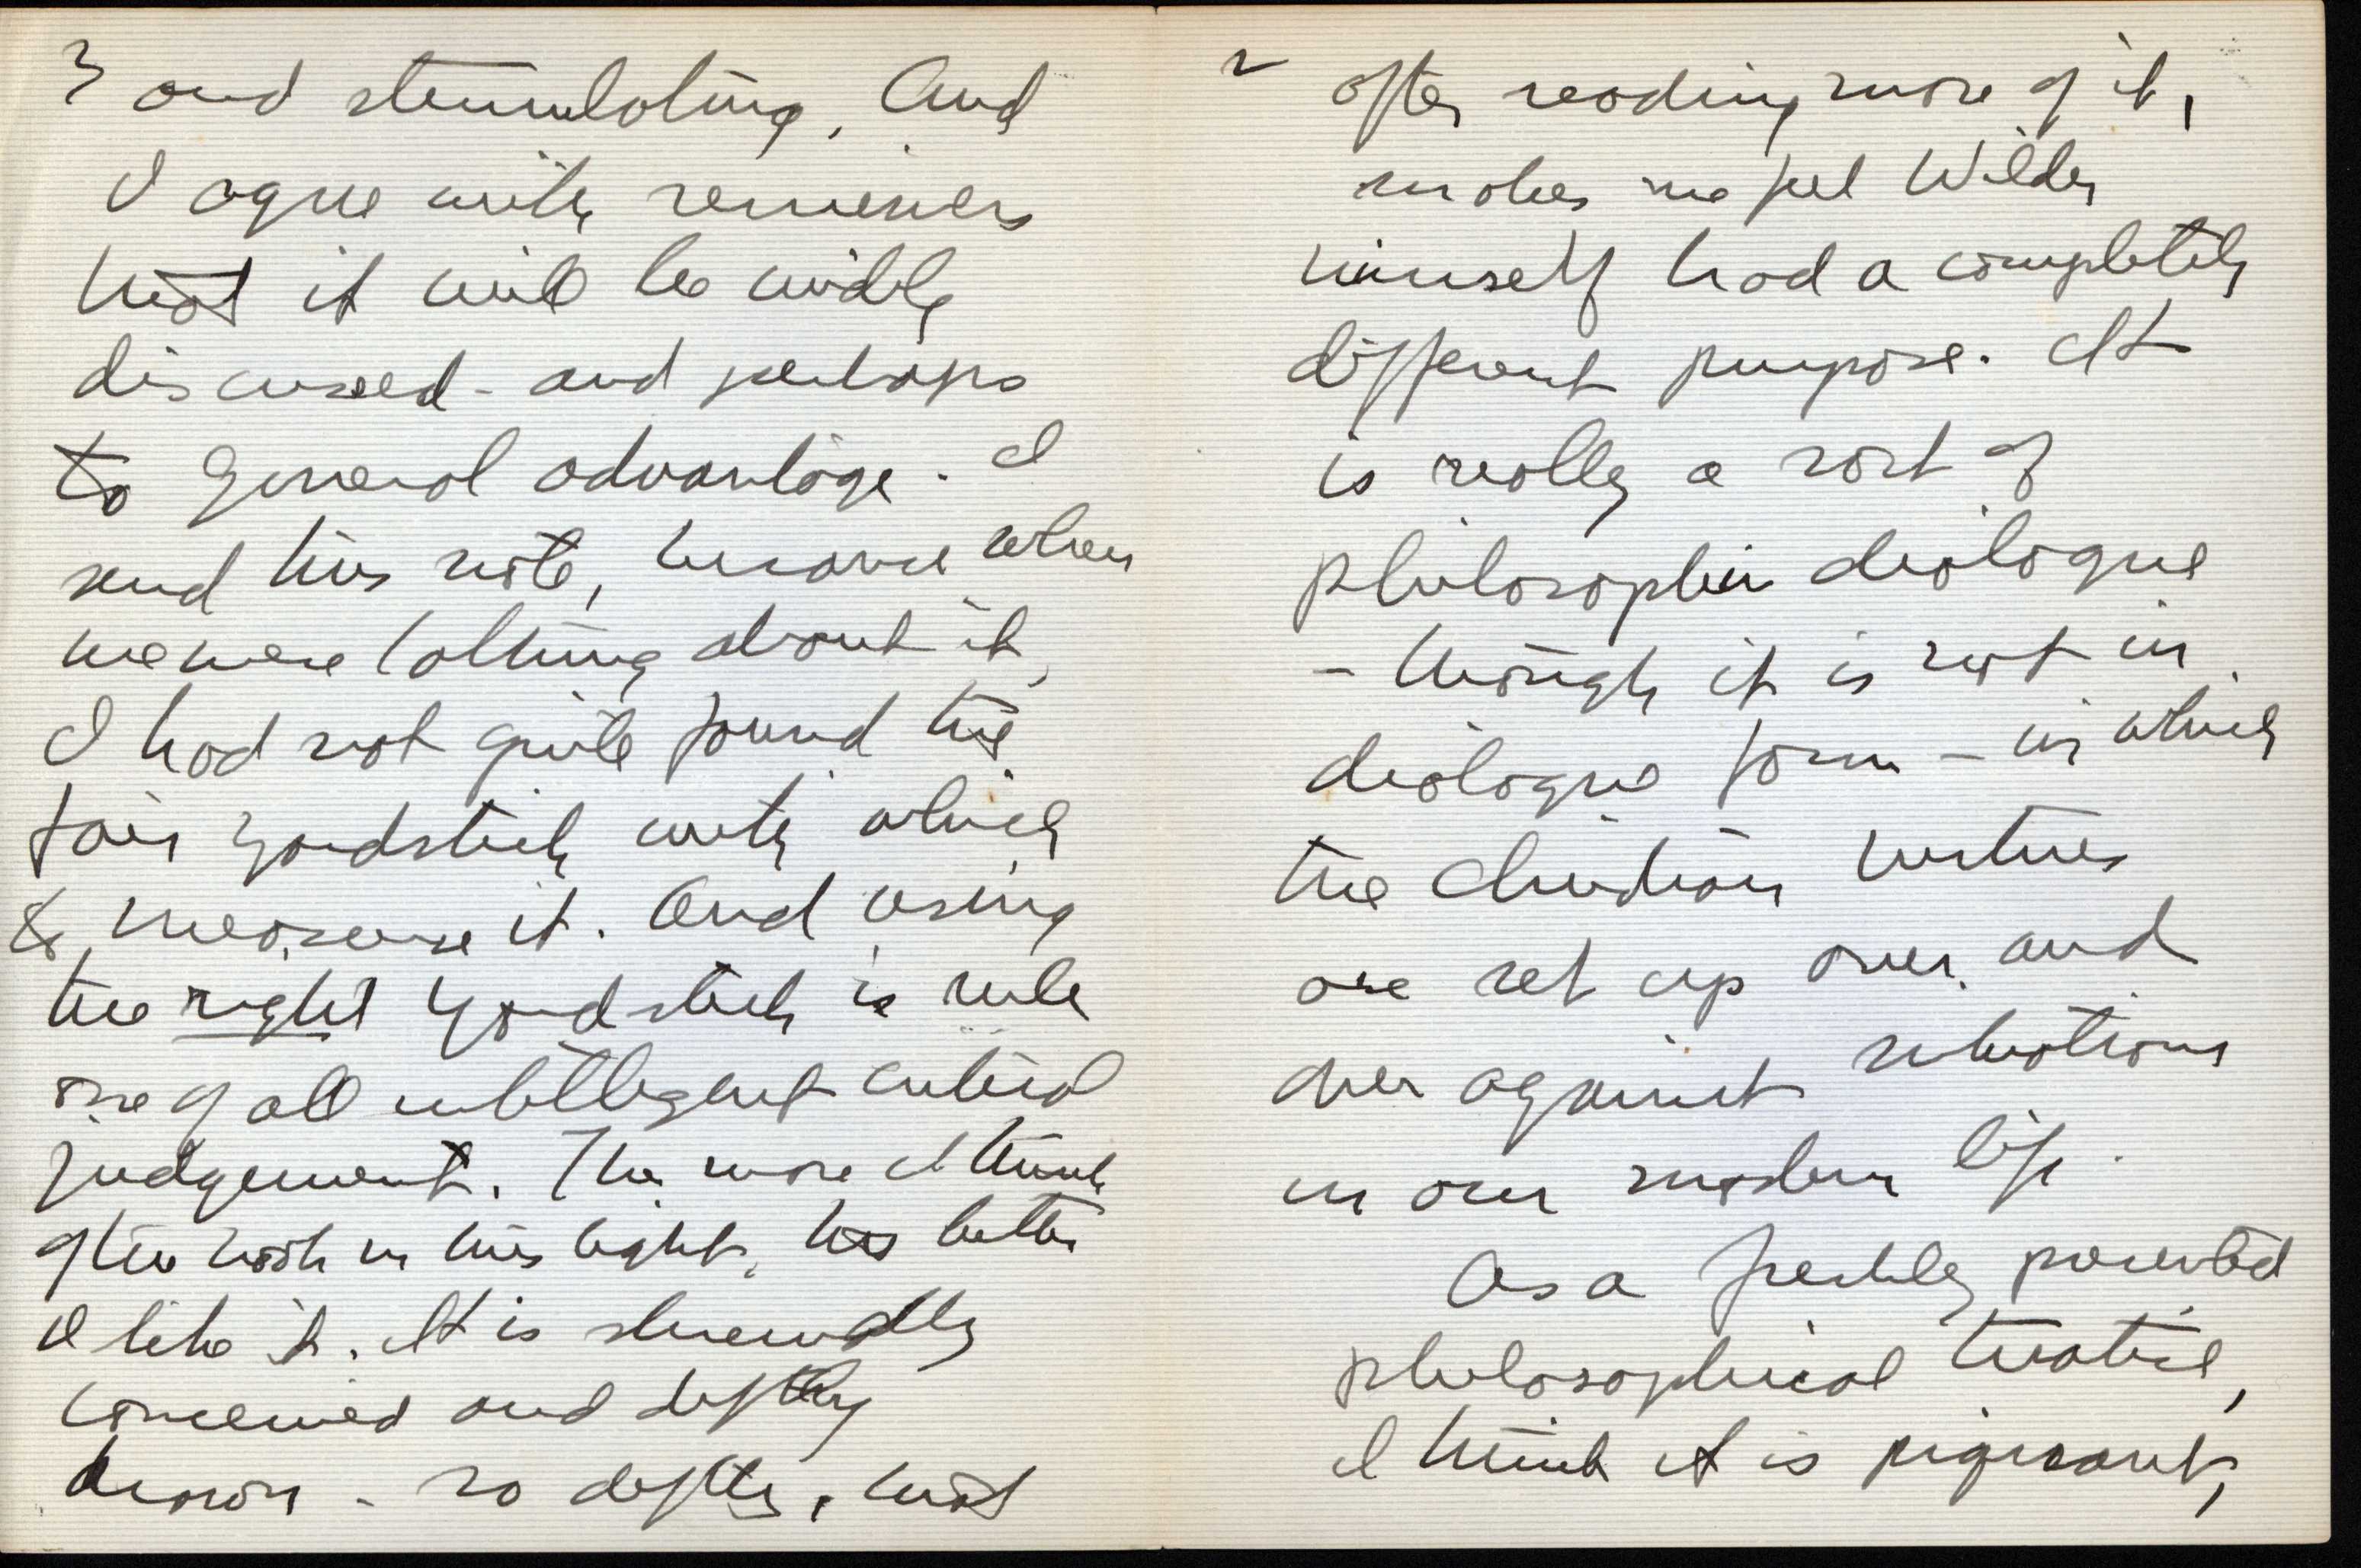 2 after reading more of it,
makes me feel Wilder
himself had a completely
different purpose. It
is really a sort of
philosophic dialogue
- though it is not in
dialogue form - in which
the Christian virtues
are set up over and
over against situations
in our modern life.
As a freshly presented
philosophical treatise,
I think it is piquant,
3 and stimulating. And
I agree with reviewers
that it will be widely
discussed - and perhaps
to general advantage. I
send this note, because when
we were talking about it,
I had not quite found the
fair yardstick with which
to measure it. And using
the right yardstick is rule
one of all intelligent critical
judgement. The more I think
of the book in this light, the better
I like it. It is shrewdly
conceived and deftly
drawn - so deftly, that